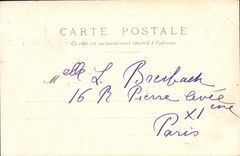 CARTE POSTALE
Ce côté est exclusivement réservé à l'adresse
Melle L. Breibach
16 R Pierre Levée
XIème
Paris